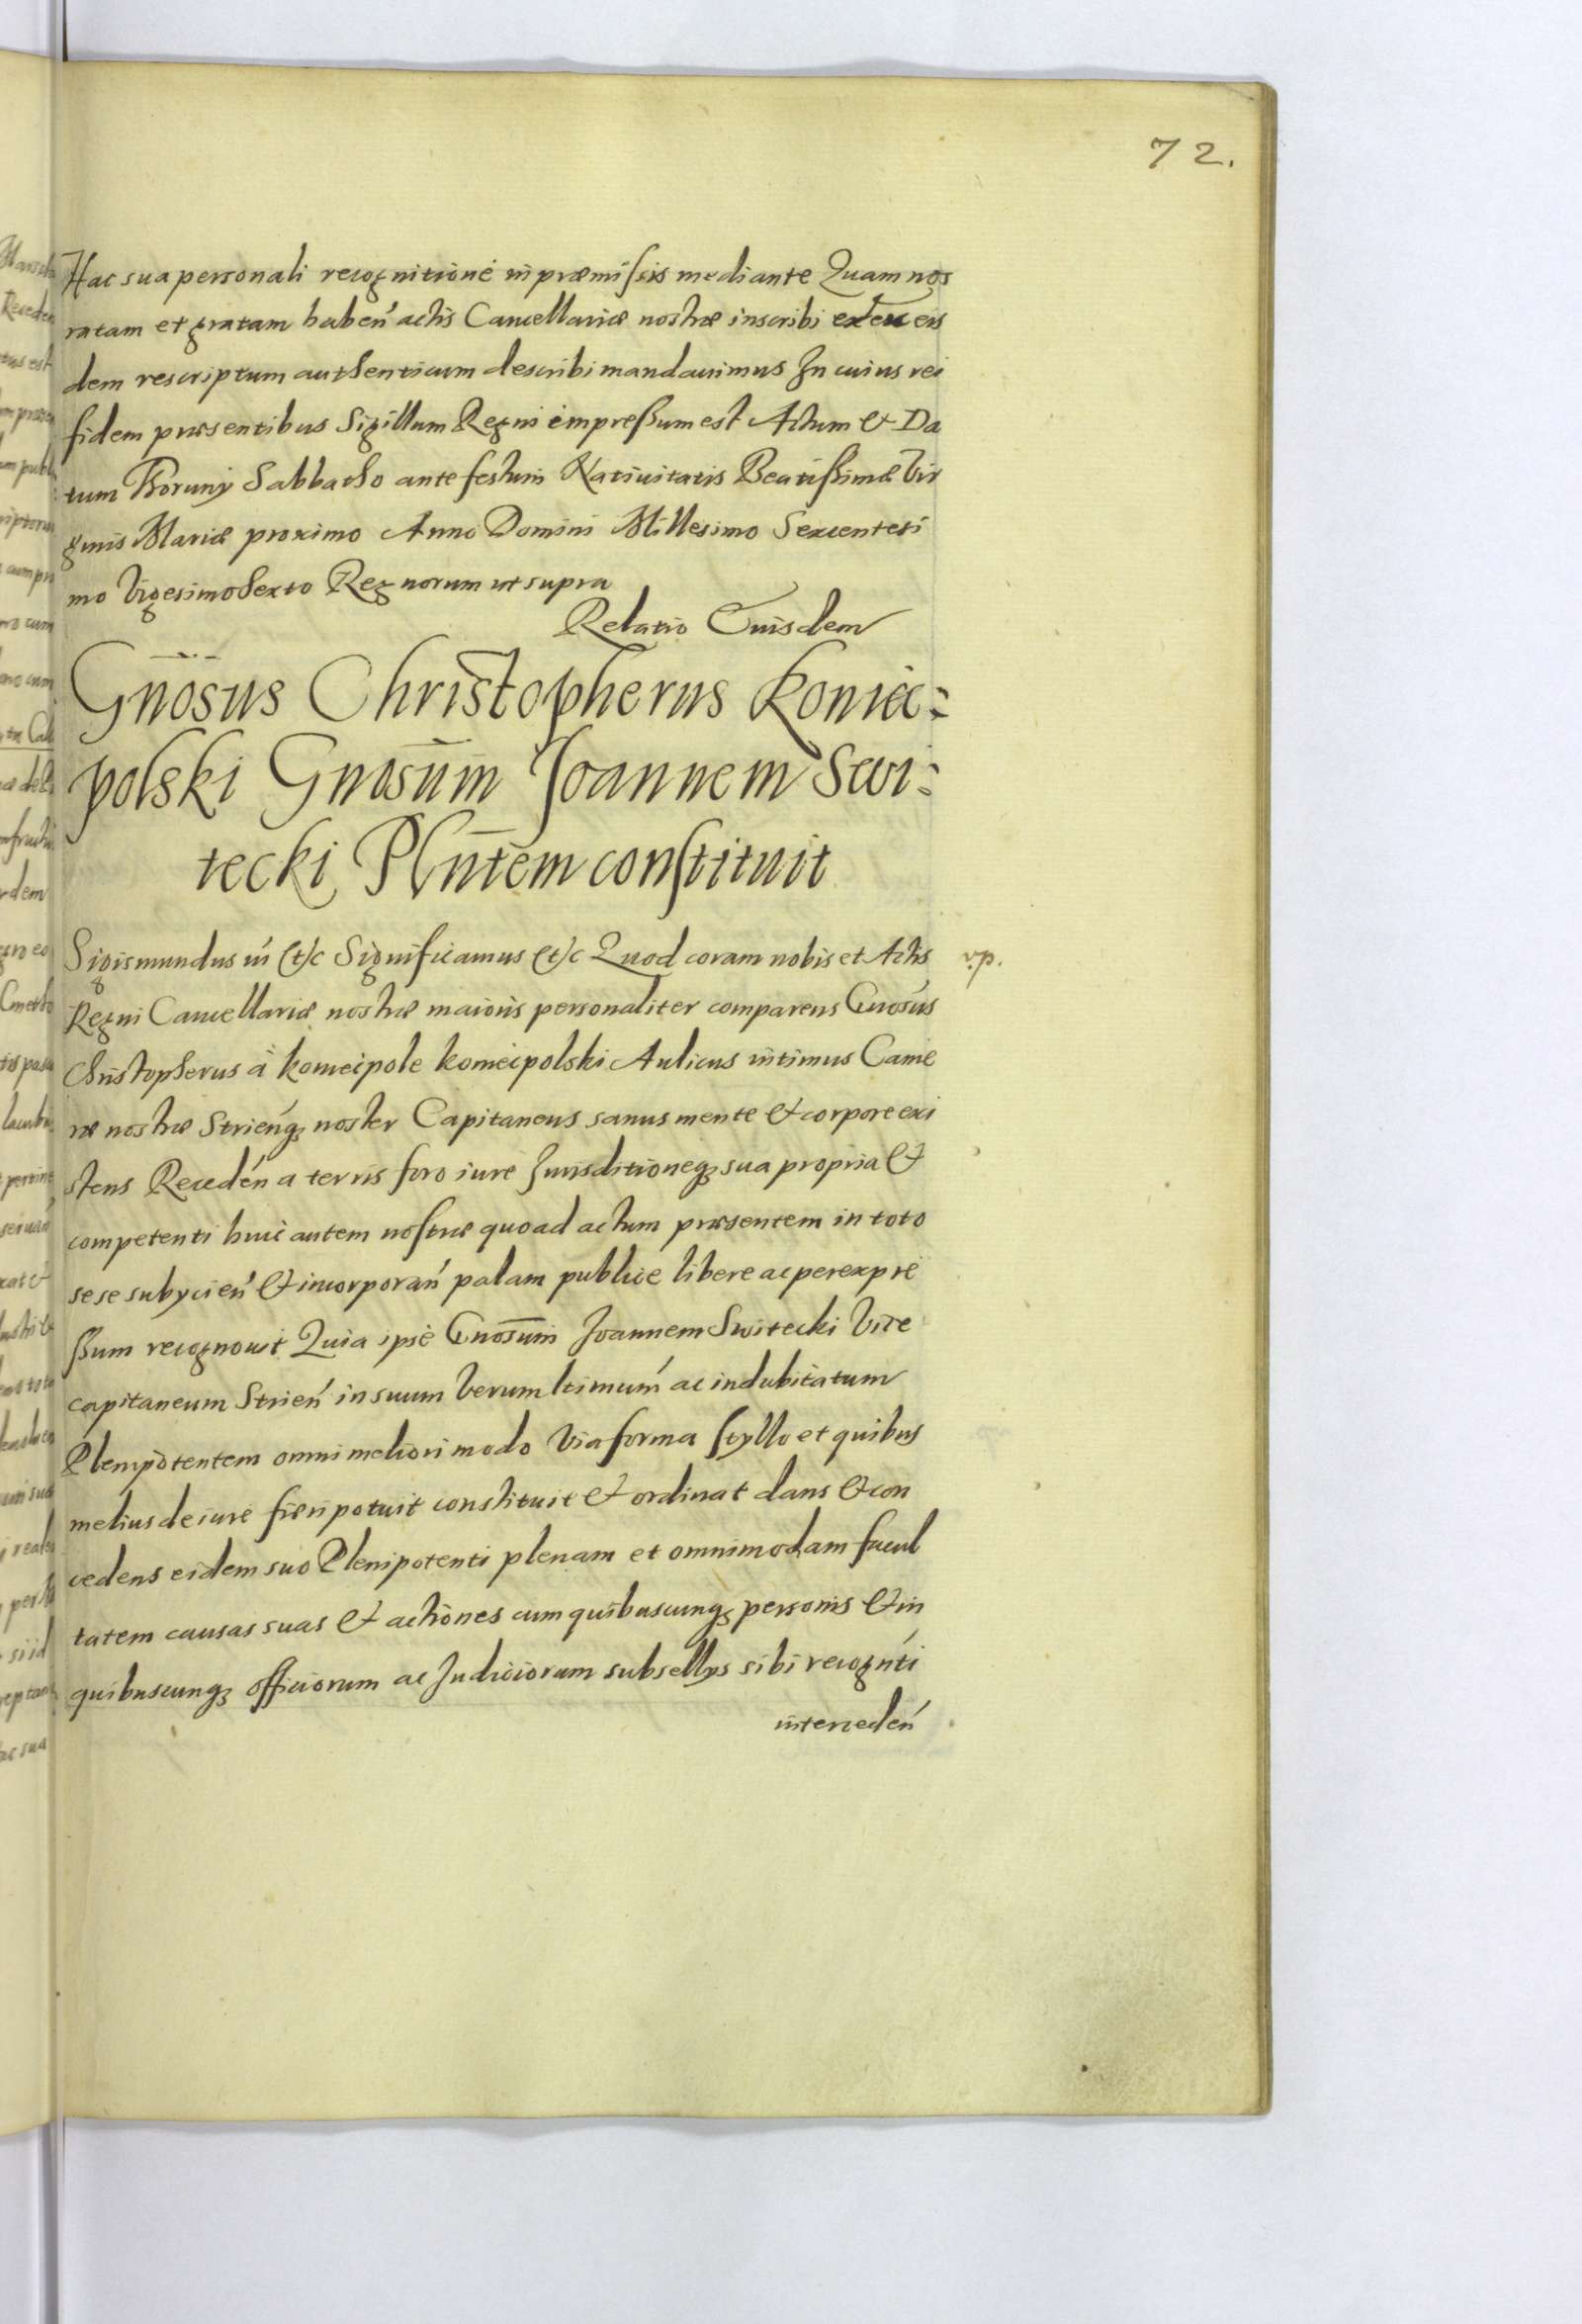 72.
Hac sua personali recognitione in præmissis mediante Quam nos
ratam et gratam habeń actis Cancellariæ nostræ inscribi et ex eis
dem rescriptum authenticum describi mandauimus In cuius rei
fidem præsentibus Sigillum Regni impreßum est Actum & Da
tum Thoruny Sabbatho ante festum Natiuitatis Beatißimæ Vir
ginis Mariæ proximo Anno Domini Millesimo Sexcentesi
mo Vigesimo Sexto Regnorum ut supra
Relatio Eiusdem
Gnosus Christopherus Koniec:
polski Gnosum Joannem Swi:
tecki Plntem constituit
Sigismundus iii (et)c Significamus (et)c Quod coram nobis et Actis
v.p.
Regni Cancellariæ nostræ maioris personaliter comparens Gnosus
Christopherus à Koniecpole Koniecpolski Aulicus intimus Came
ræ nostræ Strieńq noster Capitaneus sanus mente & corpore exi
stens Recedeń a terris foro iure Jurisditioneq sua propria &
competenti huic autem nostræ quoad actum præsentem in toto
sese subycień & incorporań palam publice libere ac per expre
ßum recognouit Quia ipse Gnosum Joannem Switecki Vice
capitaneum Strień in suum Verum ltimum ac indubitatum
Plenipotentem omni meliori modo Via forma stylo et quibus
melius de iure fieri potuit constituit & ordinat dans & con
cedens eidem suo Plenipotenti plenam et omnimodam facul
tatem causas suas & actiones cum quibuscunq personis & in
quibuscunq officiorum ac Judiciorum subsellys sibi recognti
intercedeń